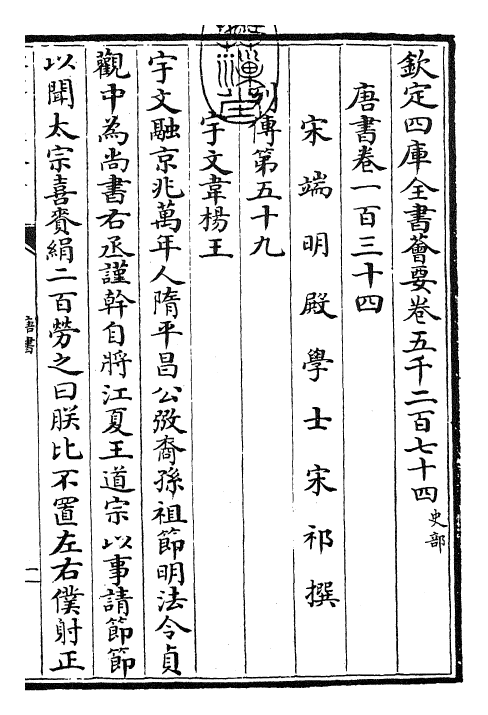 欽定四庫全書薈要卷五千二百七十四 史部
唐書卷一百三十四
宋端明殿學士宋祁撰
列傳第五十九
宇文韋楊王
宇文融京兆萬年人隋平昌公㢸裔孫祖節明法令貞
觀中為尚書右丞謹幹自將江夏王道宗以事請節節
以聞太宗喜賚絹二百勞之曰朕比不置左右僕射正
唐書